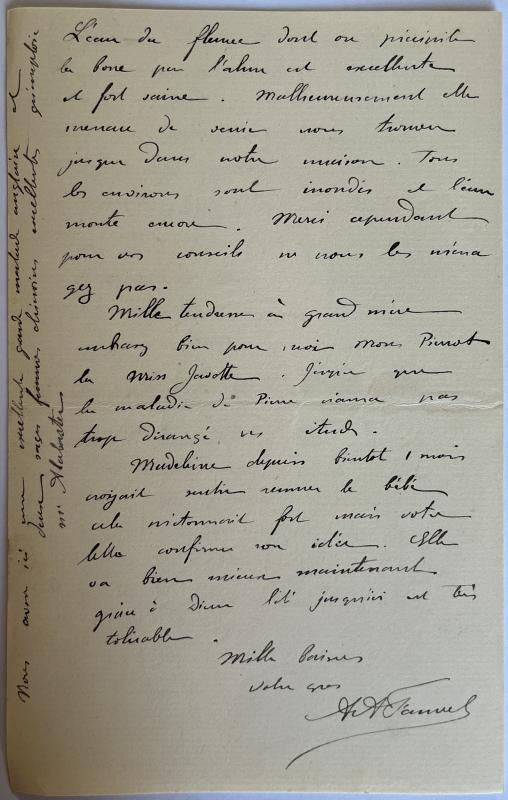 L'eau du fleuve dont on précipite
la boue par l'alun est excellente
et fort saine. Malheureusement elle
menace de venir nous trouver
jusque dans notre maison. Tous
les environs sont inondés et l'eau
monte encore. Merci cependant
pour vos conseils ne nous les ména
gez pas.
Mille tendresses à grand mère
embrassez bien pour moi mons Pierrot
la Miss Javotte. J'espère que
la maladie de Pierre n'aura pas
trop dérangé ses études.
Madeleine depuis bientôt 1 mois
croyait sentir remuer le bébé
cela m'étonnait fort mais votre
lettre confirme son idée. Elle
va bien mieux maintenant
grâce à Dieu l'été jusqu'ici est très
tolérable.
Mille baisers
votre
Nous avons ici une excellente garde malade anglaise et
deux sages femmes chinoises excellentes qu'emploie
Mr Alabaster